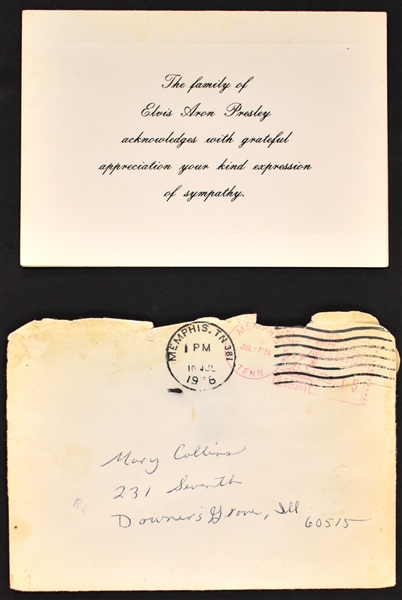 The family of
Elvis Aron Presley
acknowledges with grateful
appreciation your kind expression
of sympathy.
MEMPHIS, TN 381
PM
10 JUL
MEMPHIS
JUL
TENN
Mary Collins
231 Seventh
Downer's Grove, Ill
60515